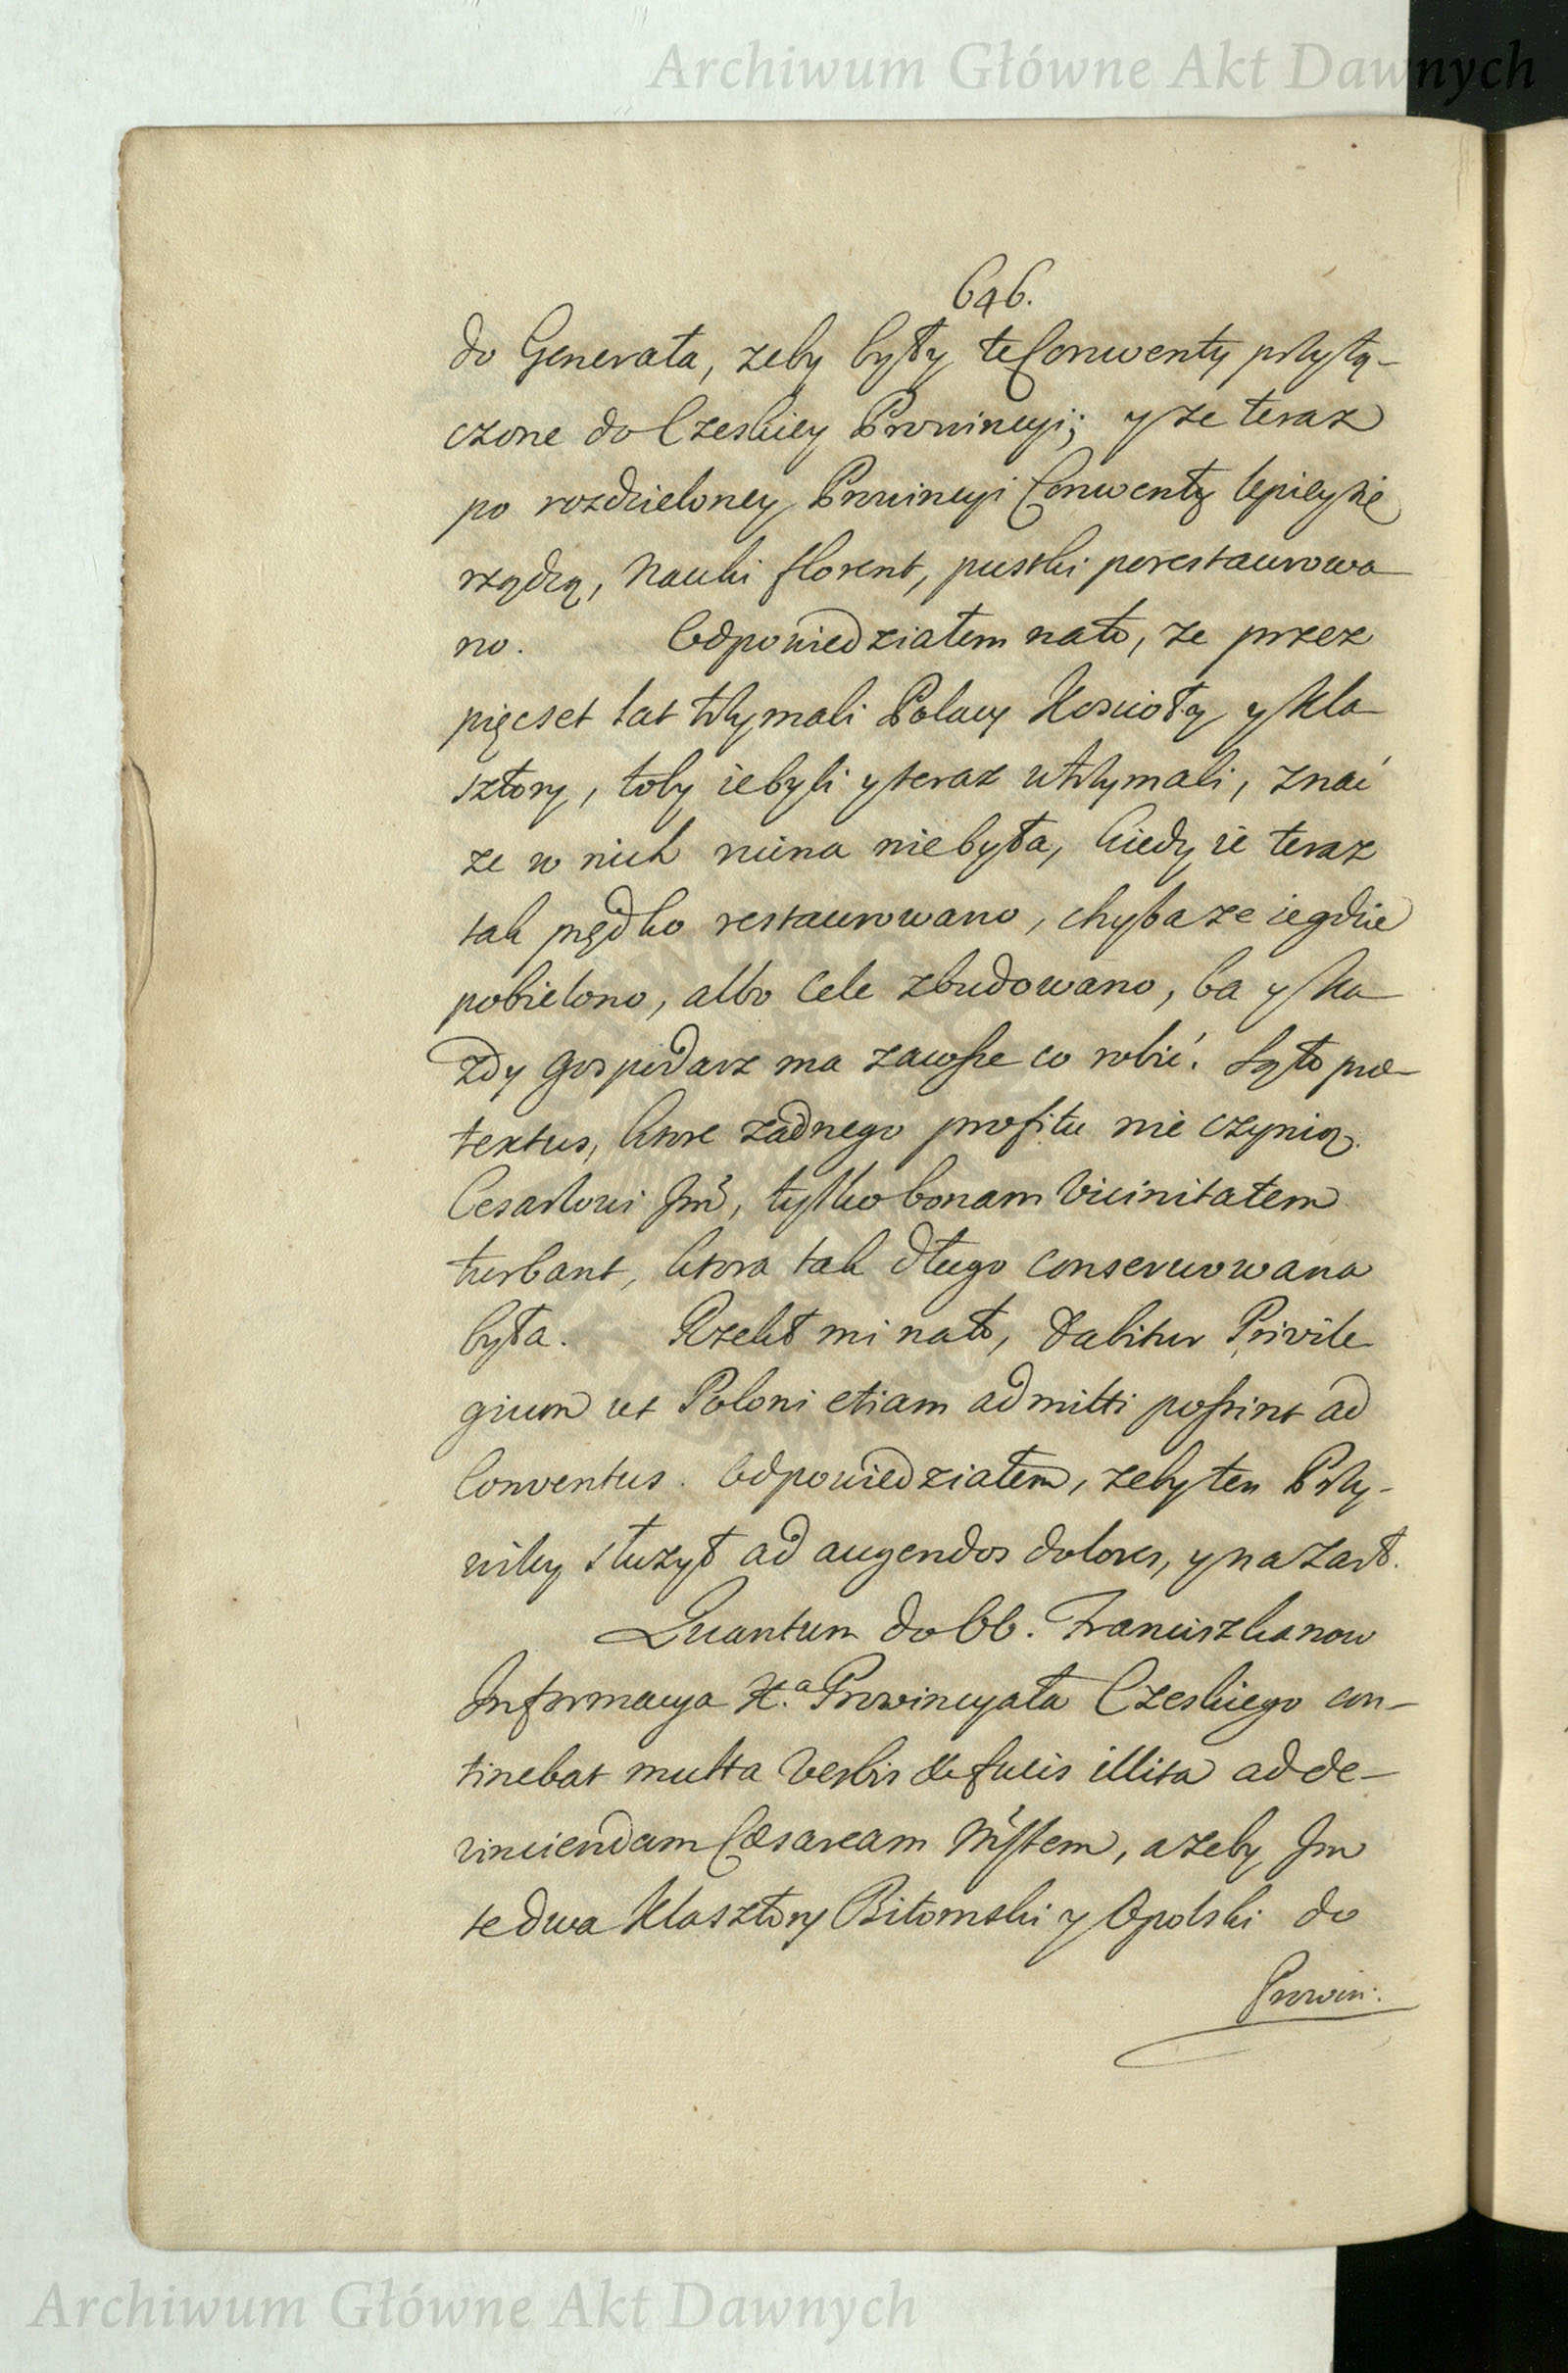 Archiwum Główne Akt Dawnych
646.
do Generała, zeby były te Conwenty przyłą-
czone do Czeskiey Prowincyi; y ze teraz
po rozdzieloney Prowincyi Conwenty lepiey się
rządzą, Nauki florent, pustki porestaurowa
no. Odpowiedziałem nato, ze przez
pięcset lat trzymali Polacy Koscioły y Kla
sztory, toby ie byli y teraz utrzymali, znać
ze w nich ruina niebyła, kiedy ie teraz
tak prędko restaurowano, chyba ze ie gdzie
pobielono, albo Cele zbudowano, ba y ka
zdy gospodarz ma zawsze co robić. Są to præ-
textus, ktore zadnego profitu nie czynią
Cesarzowi Jm̃, tylko bonam Vicinitatem
turbant, ktora tak długo conserwowana
była. Rzekł mi nato, Dabitur Privile
gium ut Poloni etiam admitti possint ad
Conventus. Odpowiedziałem, zeby ten Przy-
wiley słuzył ad augendos dolores, y na zart.
Quantum do OO. Franciszkanow
Informacya X.ª Prowincyała Czeskiego con-
tinebat multa Verbis & fucis illita ad de-
vinciendam Cæsaream Mſtem, azeby Jm
te dwa Klasztory Bitomski y Opolski do
Prowin:
Archiwum Główne Akt Dawnych